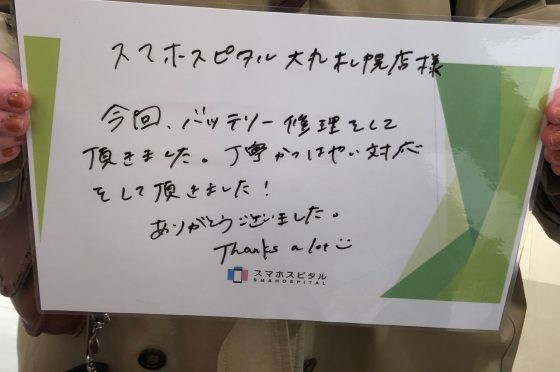 スマホスピタル大丸札幌店様
今回、バッテリー修理をして
頂きました。丁寧かつはやい対応
をして頂きました！
ありがとうございました。
Thanks a lot
スマホスピタル
SMAHOSPITAL